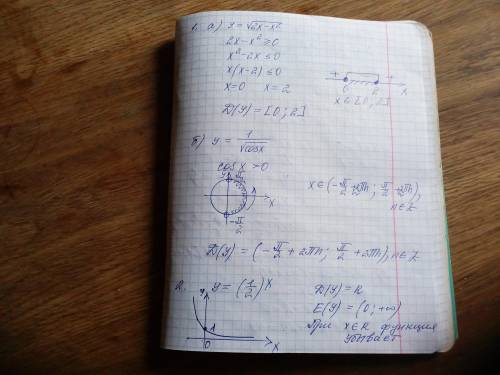 1. а) y = √2x-x²
2x-x² ≥ 0
x²-2x ≤ 0
x(x-2) ≤ 0
x=0 x=2
+ - +
0 2 x
x ∈ [0; 2]
D(y) = [0; 2]
б) y = 1/√cosx
cosx > 0
y π/2
x
-π/2
x ∈ (-π/2 + 2πn; π/2 + 2πn),
n ∈ Z
D(y) = (-π/2 + 2πn; π/2 + 2πn), n ∈ Z
2. y = (1/2)^x
y
1
0 x
D(y) = R
E(y) = (0; +∞)
При x ∈ R функция
убывает